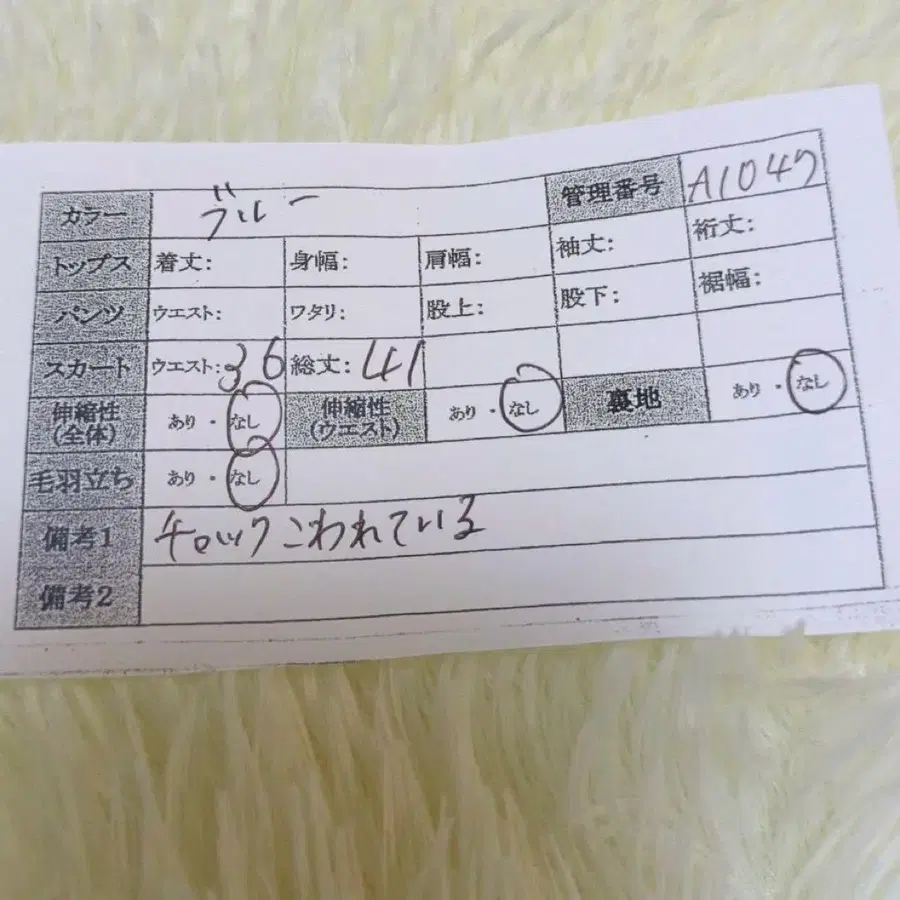 カラー ブルー 管理番号 A1047
トップス 着丈: 身幅: 肩幅: 袖丈: 裄丈:
パンツ ウエスト: ワタリ: 股上: 股下: 裾幅:
スカート ウエスト:36 総丈:41
伸縮性(全体) あり・なし 伸縮性(ウエスト) あり・なし 裏地 あり・なし
毛羽立ち あり・なし
備考1 チロック こわれている
備考2